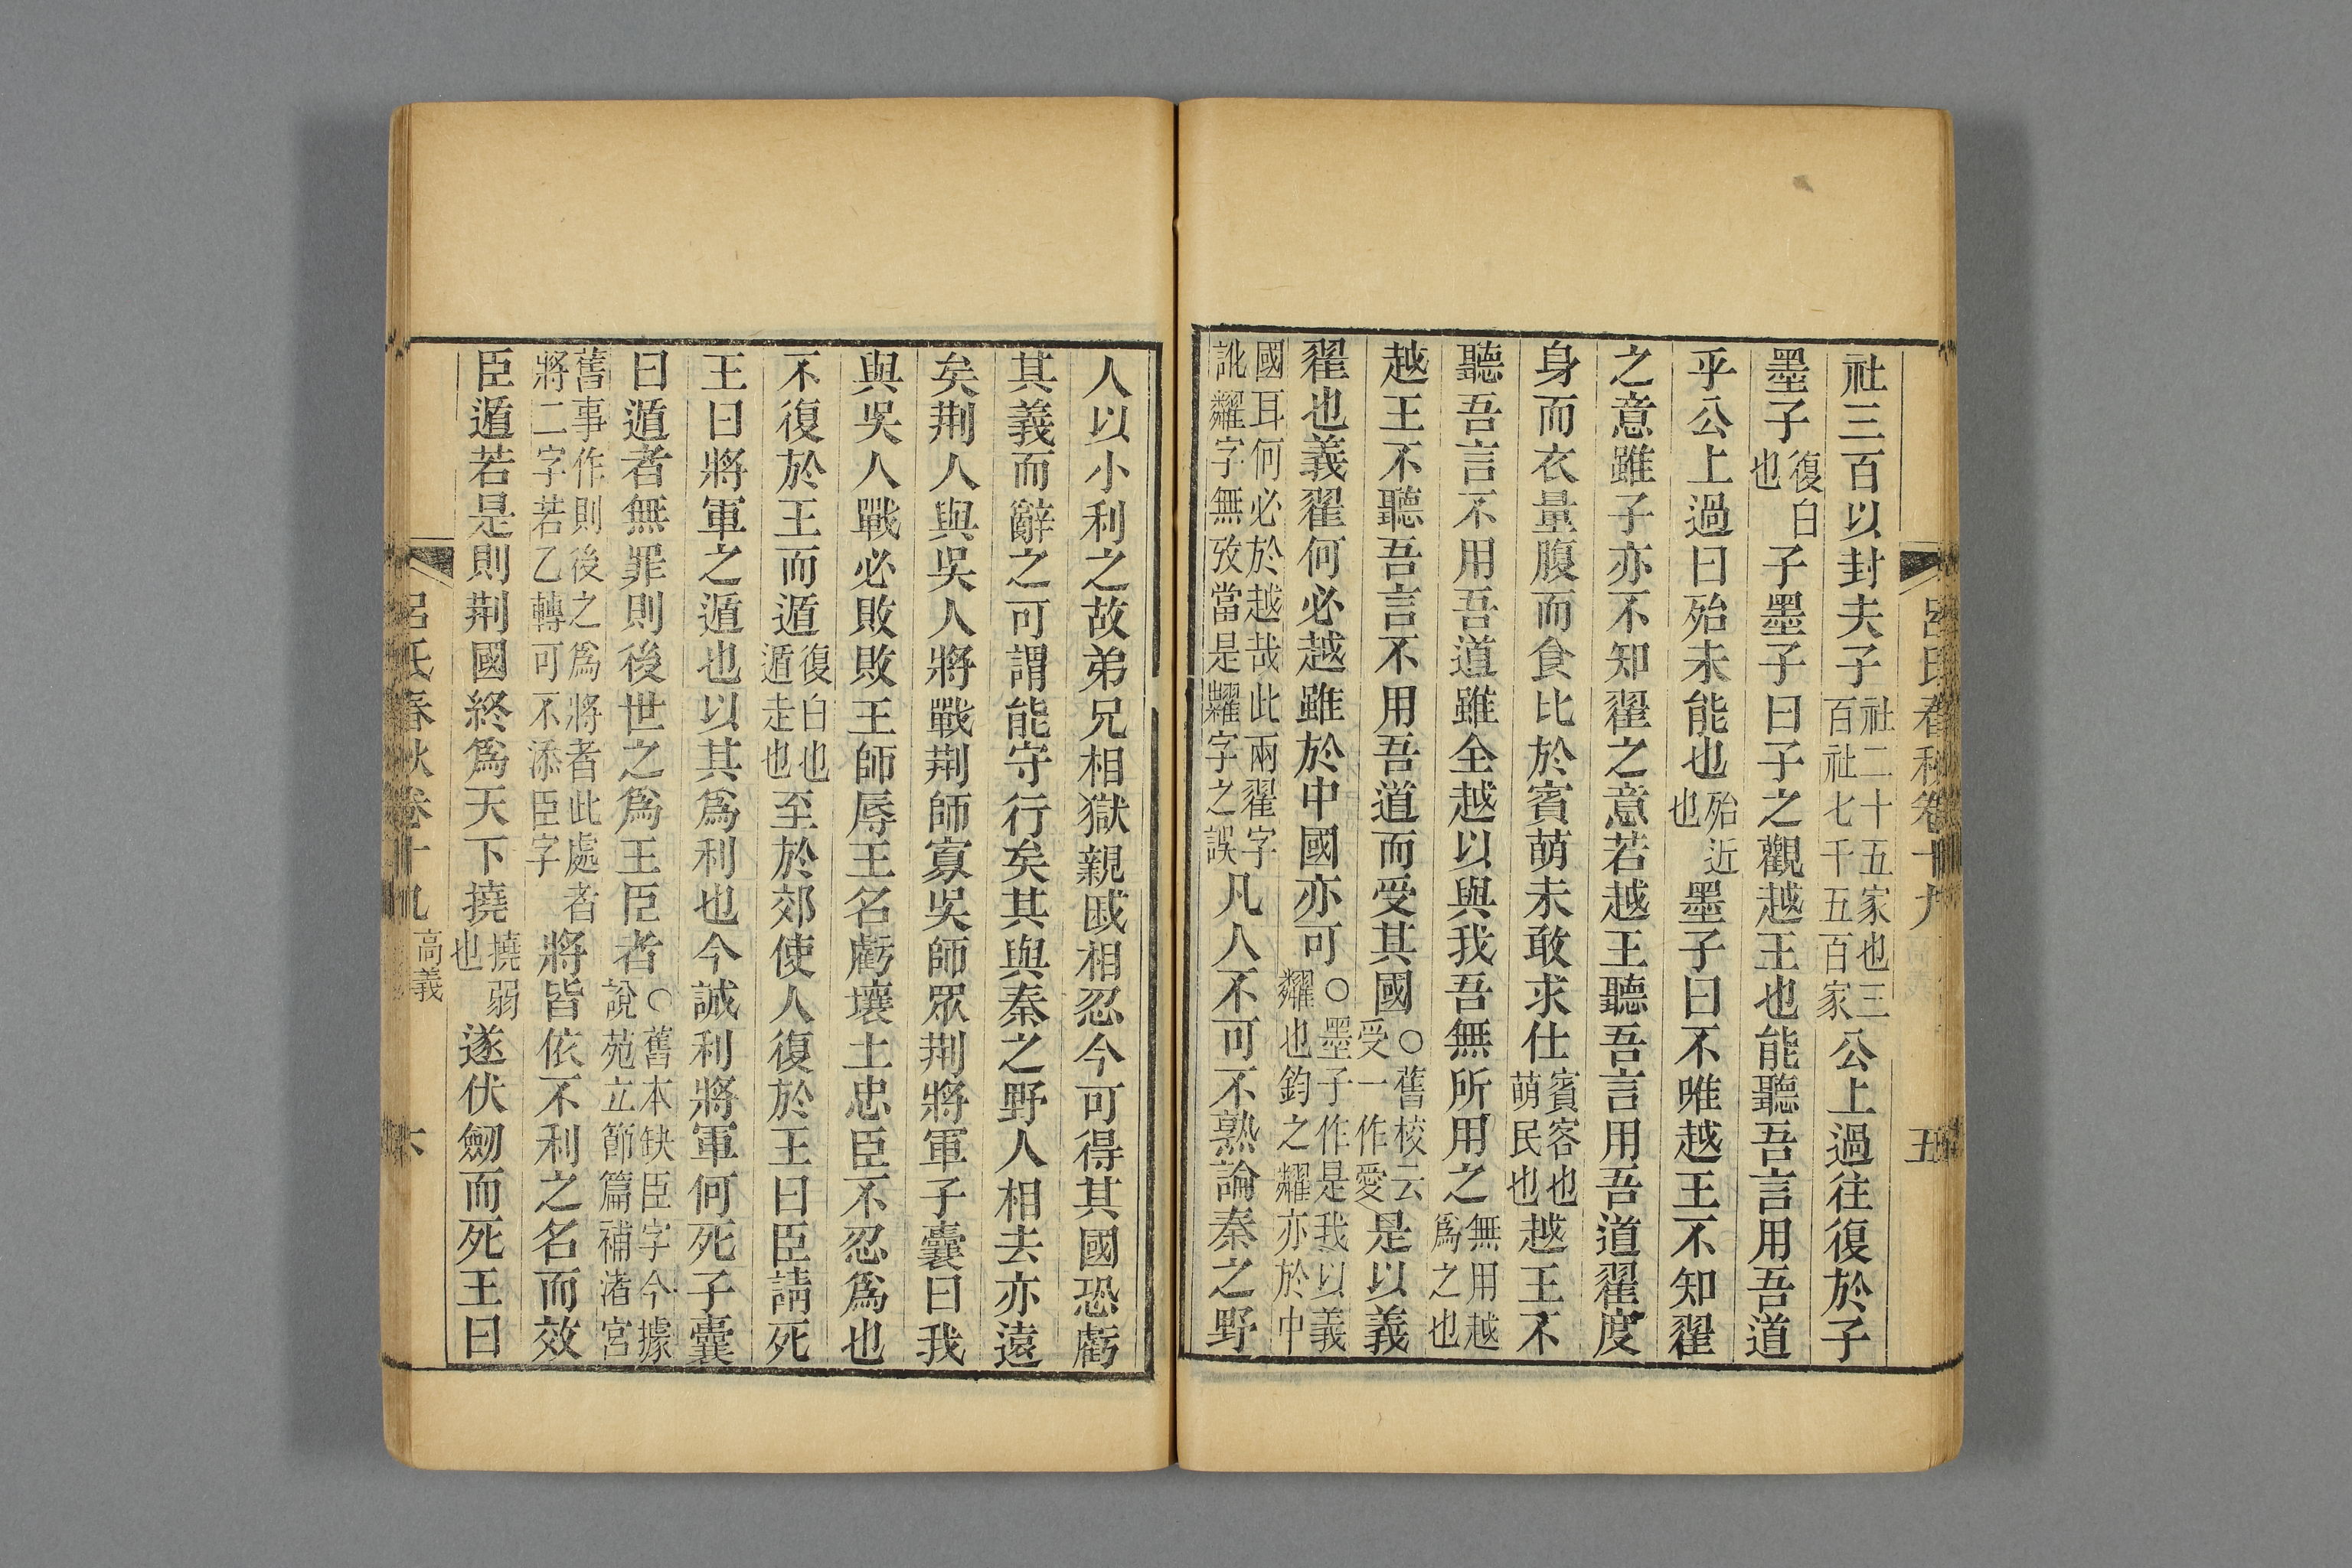 呂氏春秋卷十九　五
社三百以封夫子社二十五家也三百社七千五百家公上過往復於子
墨子復白也子墨子曰子之觀越王也能聽吾言用吾道
乎公上過曰殆未能也殆近也墨子曰不唯越王不知翟
之意雖子亦不知翟之意若越王聽吾言用吾道翟度
身而衣量腹而食比於賓萌未敢求仕賓客也萌民也越王不
聽吾言不用吾道雖全越以與我吾無所用之無用越爲之也
越王不聽吾言不用吾道而受其國○舊校云受一作愛是以義
翟也義翟何必越雖於中國亦可○墨子作是我以義䊮也鈞之䊮亦於中
國耳何必於越哉此兩翟字訛䊮字無攷當是糶字之誤凡人不可不熟論秦之野
人以小利之故弟兄相獄親戚相忍今可得其國恐虧
其義而辭之可謂能守行矣其與秦之野人相去亦遠
矣荆人與吳人將戰荆師寡吳師眾荆將軍子囊曰我
與吳人戰必敗敗王師辱王名虧壤土忠臣不忍爲也
不復於王而遁復白也遁走也至於郊使人復於王曰臣請死
王曰將軍之遁也以其爲利也今誠利將軍何死子囊
曰遁者無罪則後世之爲王臣者○舊本缺臣字今據說苑立節篇補渚宮
舊事作則後之爲將者此處者將二字若乙轉可不添臣字將皆依不利之名而效
臣遁若是則荆國終爲天下撓撓弱也遂伏劒而死王曰
呂氏春秋卷十九　高義　六